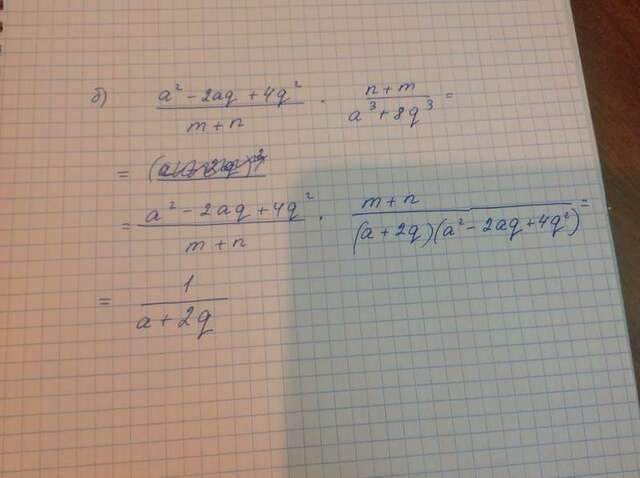 б) (a² - 2aq + 4q²)/(m + n) · (n + m)/(a³ + 8q³) =
=
= (a² - 2aq + 4q²)/(m + n) · (m + n)/((a + 2q)(a² - 2aq + 4q²)) =
= 1/(a + 2q)